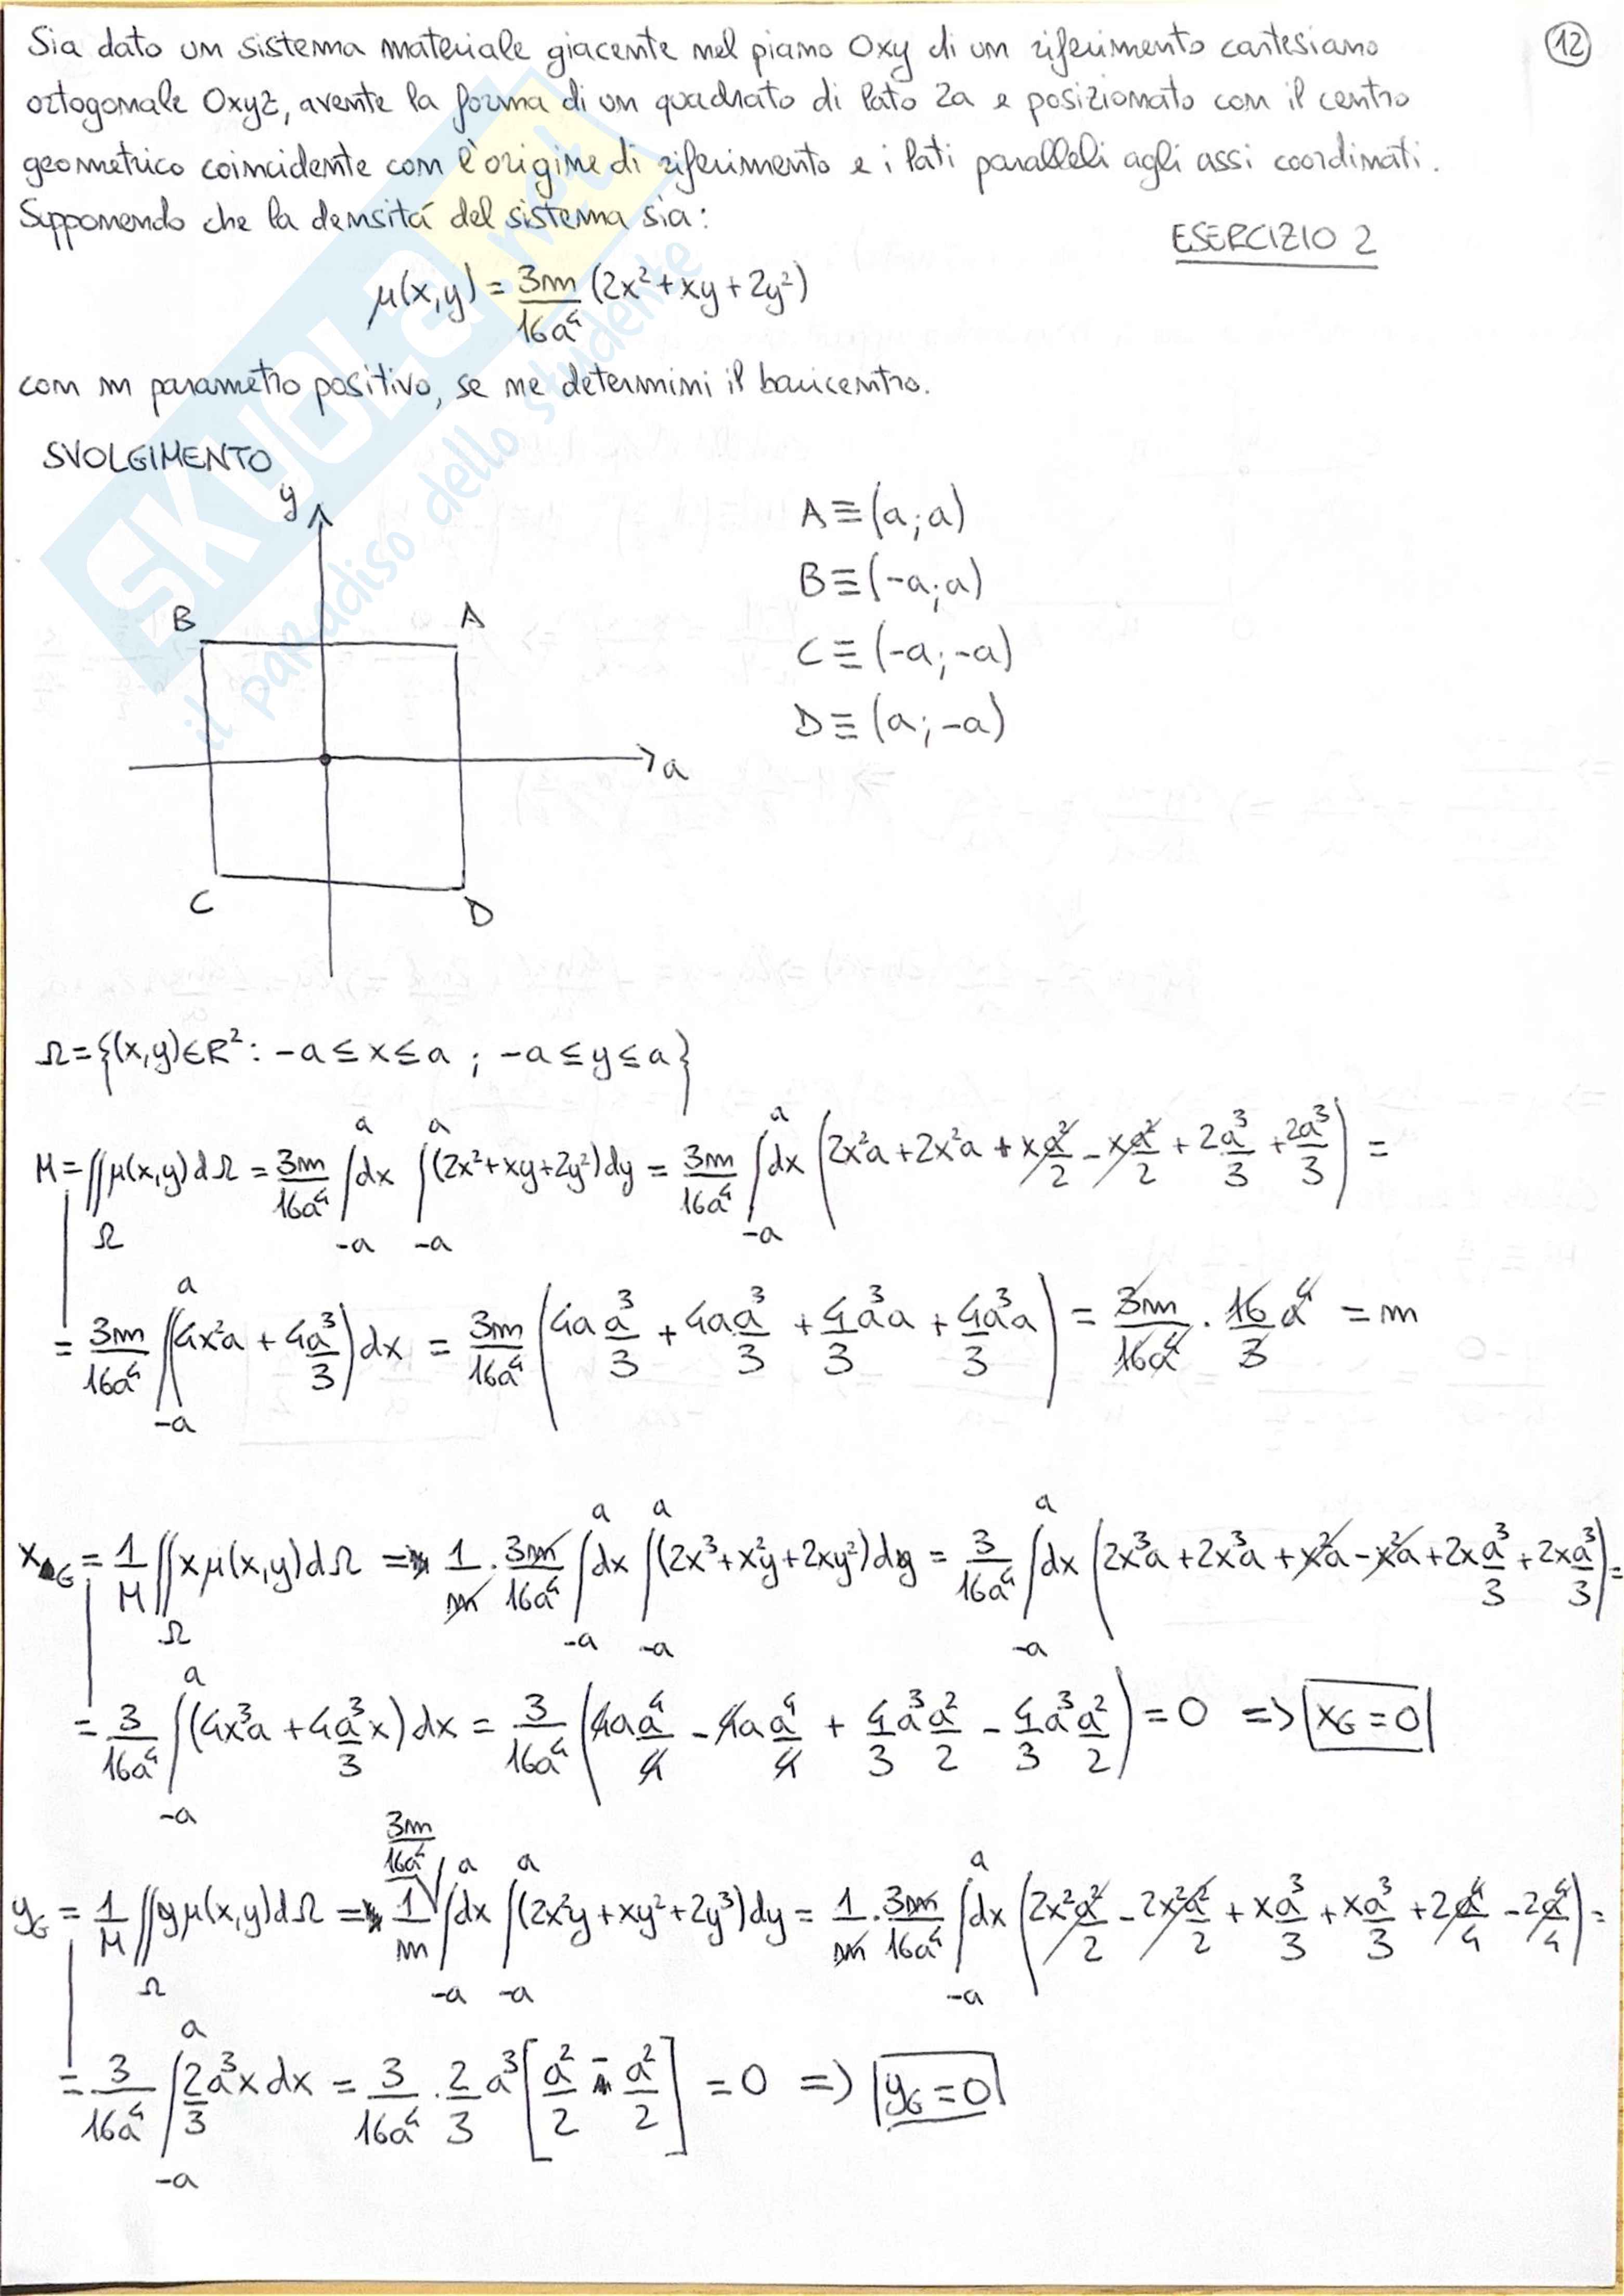 Sia dato un sistema materiale giacente nel piano Oxy di un riferimento cartesiano
12
ortogonale Oxyz, avente la forma di un quadrato di lato 2a e posizionato con il centro
geometrico coincidente con l'origine di riferimento e i lati paralleli agli assi coordinati.
Supponendo che la densitá del sistema sia:
ESERCIZIO 2
μ(x,y) = 3m/16a⁴ (2x² + xy + 2y²)
con m parametro positivo, se ne determini il baricentro.
SVOLGIMENTO
y
A ≡ (a; a)
B ≡ (-a; a)
C ≡ (-a; -a)
D ≡ (a; -a)
B A
a
C D
Ω = {(x,y) ∈ R² : -a ≤ x ≤ a ; -a ≤ y ≤ a}
M = ∬_Ω μ(x,y) dΩ = 3m/16a⁴ ∫_{-a}^{a} dx ∫_{-a}^{a} (2x² + xy + 2y²) dy = 3m/16a⁴ ∫_{-a}^{a} dx (2x²a + 2x²a + x a²/2 - x a²/2 + 2a³/3 + 2a³/3) =
= 3m/16a⁴ ∫_{-a}^{a} (4x²a + 4a³/3) dx = 3m/16a⁴ (4a a³/3 + 4a a³/3 + 4/3 a³a + 4/3 a³a) = 3m/16a⁴ · 16/3 a⁴ = m
x_G = 1/M ∬_Ω x μ(x,y) dΩ = 1/m · 3m/16a⁴ ∫_{-a}^{a} dx ∫_{-a}^{a} (2x³ + x²y + 2xy²) dy = 3/16a⁴ ∫_{-a}^{a} dx (2x³a + 2x³a + x²a - x²a + 2x a³/3 + 2x a³/3) =
= 3/16a⁴ ∫_{-a}^{a} (4x³a + 4a³/3 x) dx = 3/16a⁴ (4a a⁴/4 - 4a a⁴/4 + 4/3 a³ a²/2 - 4/3 a³ a²/2) = 0 => x_G = 0
y_G = 1/M ∬_Ω y μ(x,y) dΩ = 1/m 3m/16a⁴ ∫_{-a}^{a} dx ∫_{-a}^{a} (2x²y + xy² + 2y³) dy = 1/m · 3m/16a⁴ ∫_{-a}^{a} dx (2x² a²/2 - 2x² a²/2 + x a³/3 + x a³/3 + 2a⁴/4 - 2a⁴/4) =
= 3/16a⁴ ∫_{-a}^{a} 2/3 a³x dx = 3/16a⁴ · 2/3 a³ [a²/2 - a²/2] = 0 => y_G = 0
SKUOLA.net
il paradiso dello studente